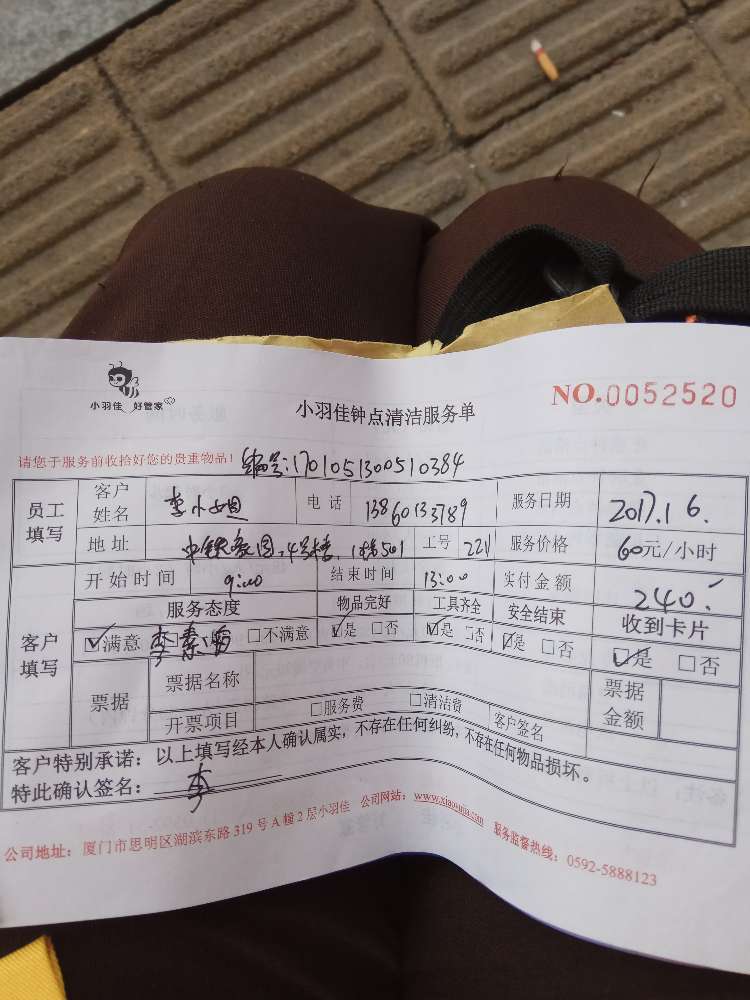 小羽佳 好管家
小羽佳钟点清洁服务单
NO.0052520
请您于服务前收拾好您的贵重物品！
编号:1701051300510384
员工填写 客户姓名 李小姐 电话 13860133789 服务日期 2017.1 6.
地址 中铁家园,4号楼,1梯501 工号 221 服务价格 60元/小时
客户填写 开始时间 9:00 结束时间 13:00 实付金额 240.
服务态度 物品完好 工具齐全 安全结束 收到卡片
☑满意 □不满意 ☑是 □否 ☑是 □否 ☑是 □否 ☑是 □否
票据 票据名称 票据金额
开票项目 □服务费 □清洁费 客户签名
客户特别承诺：以上填写经本人确认属实，不存在任何纠纷，不存在任何物品损坏。
特此确认签名： 李
公司地址：厦门市思明区湖滨东路319号A幢2层小羽佳 公司网站： 服务监督热线：0592-5888123